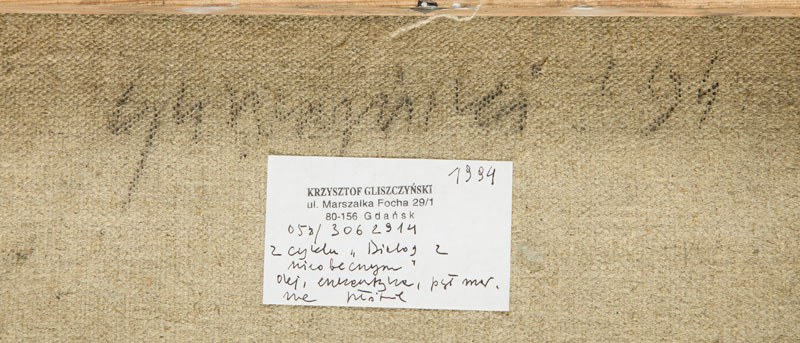 Gliszczyński '94
1994
KRZYSZTOF GLISZCZYŃSKI
ul. Marszałka Focha 29/1
80-156 Gdańsk
058/ 3062914
z cyklu „Dialog z
nieobecnym"
olej, enkaustyka,
na płótnie